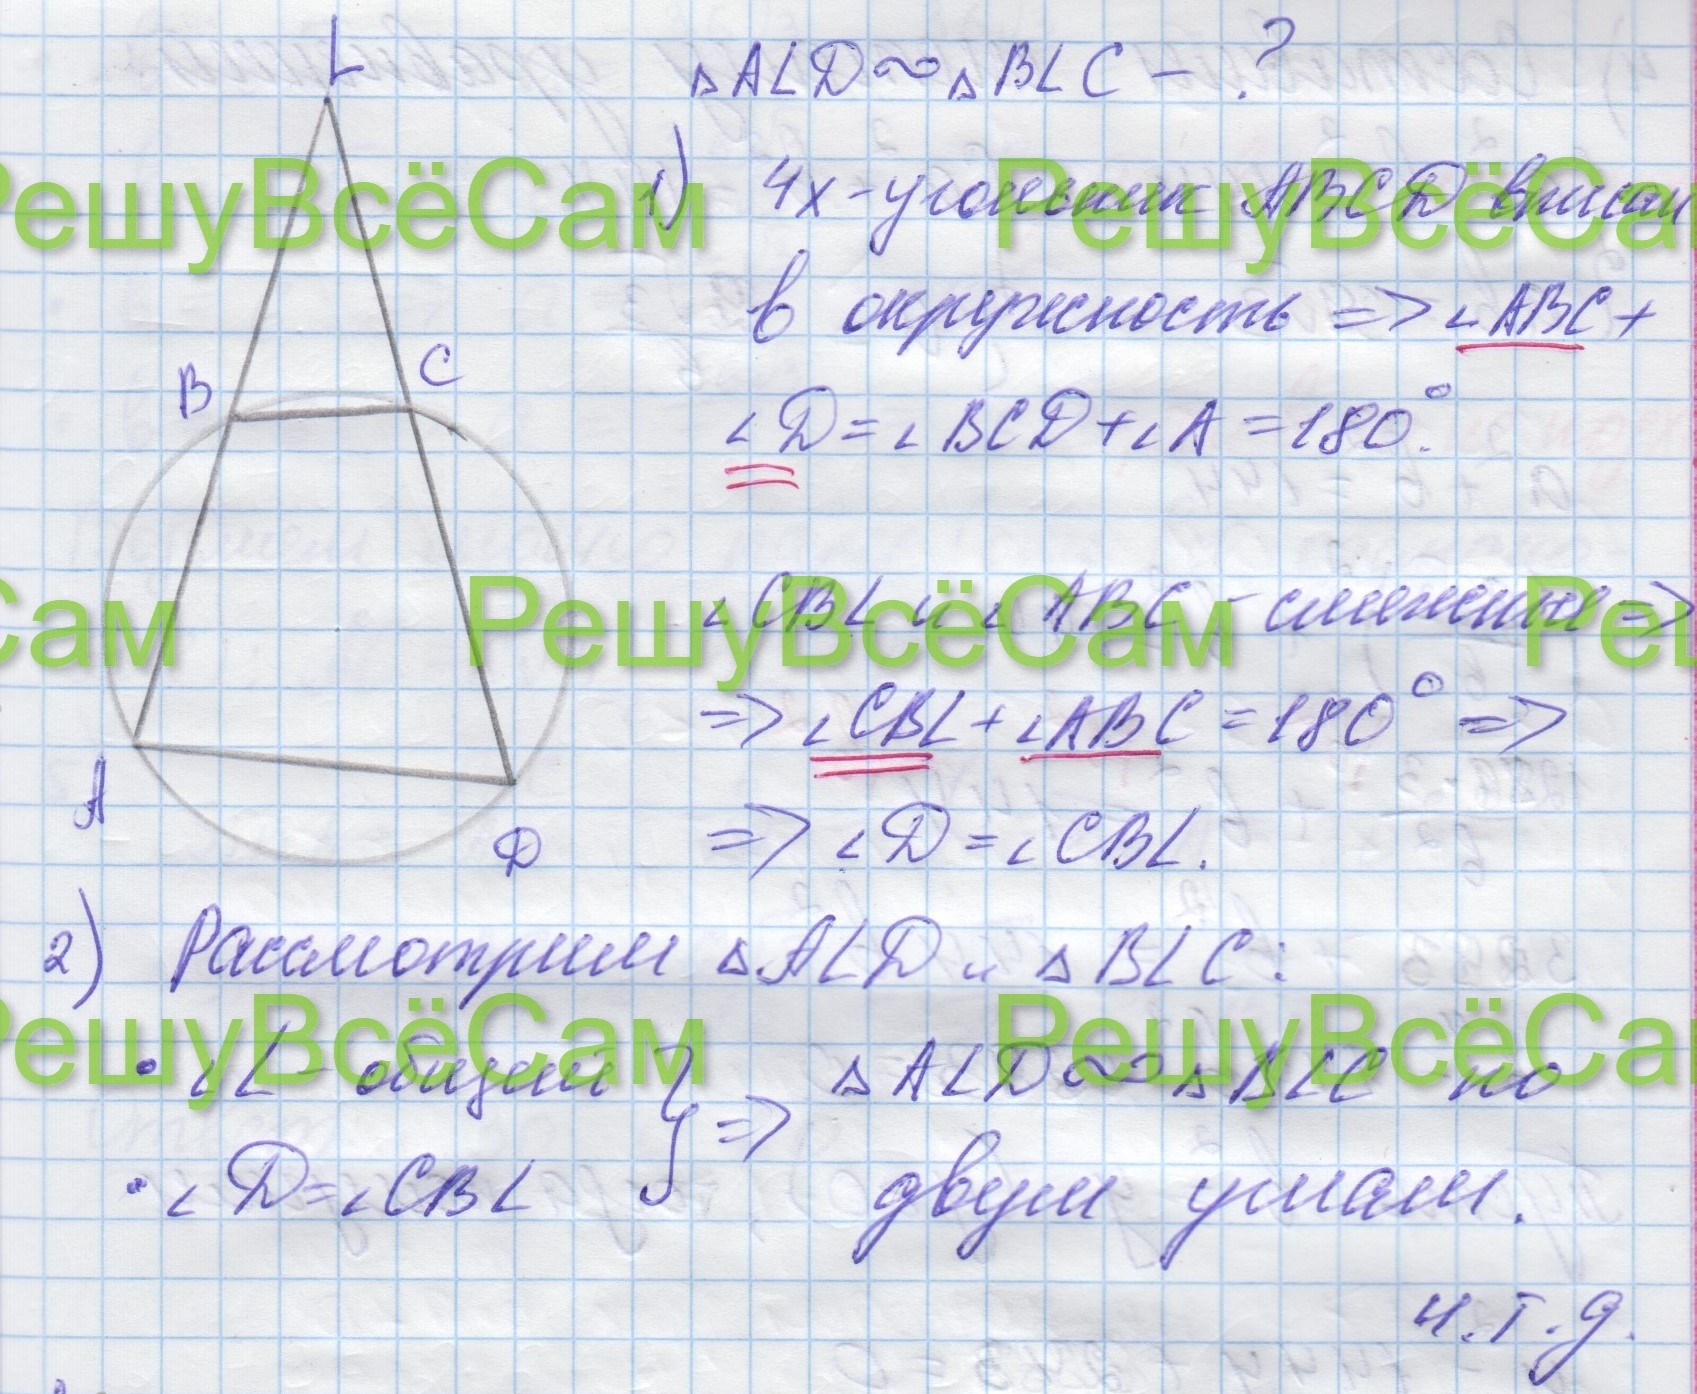 L
B
C
A
D
△ALD ∾ △BLC - ?
1) 4х-угольник ABCD вписан
в окружность => ∠ABC +
∠D = ∠BCD + ∠A = 180°.
∠CBL и ∠ABC - смежные =>
=> ∠CBL + ∠ABC = 180° =>
=> ∠D = ∠CBL.
2) Рассмотрим △ALD и △BLC:
• ∠L - общий } => △ALD ∾ △BLC по
• ∠D = ∠CBL двум углам.
ч.т.д.
РешуВсёСам
РешуВсёСам
Сам
РешуВсёСам
Реш
РешуВсёСам
РешуВсёСам